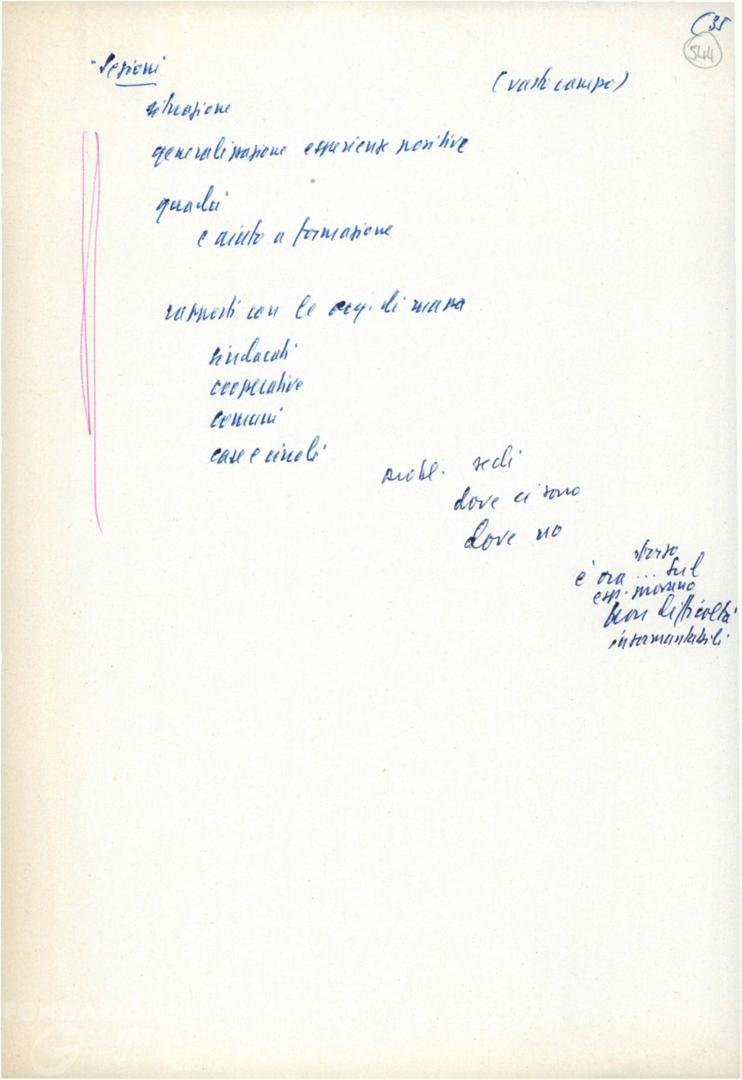 (35
544
- Sezioni
(vasto campo)
situazione
generalizzazione esperienze positive
quadri
e aiuto a formazione
rapporti con le org. di massa
sindacati
cooperative
comuni
case e circoli
probl. sedi
dove ci sono
dove no
sforzo
è ora ... sul
esp. morano
non difficoltà
insormontabili
FONDAZIONE